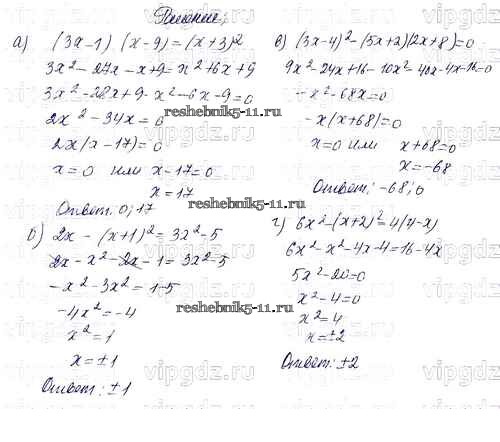 Решение:
а) (3x-1)(x-9)=(x+3)²
3x²-27x-x+9=x²+6x+9
3x²-28x+9-x²-6x-9=0
2x²-34x=0
2x(x-17)=0
x=0 или x-17=0
x=17
Ответ: 0; 17
б) 2x-(x+1)²=3x²-5
2x-x²-2x-1=3x²-5
-x²-3x²=1-5
-4x²=-4
x²=1
x=±1
Ответ: ±1
в) (3x-4)²-(5x+2)(2x+8)=0
9x²-24x+16-10x²-40x-4x-16=0
-x²-68x=0
-x(x+68)=0
x=0 или x+68=0
x=-68
Ответ: -68; 0
г) 6x²-(x+2)²=4(4-x)
6x²-x²-4x-4=16-4x
5x²-20=0
x²-4=0
x²=4
x=±2
Ответ: ±2
reshebnik5-11.ru
reshebnik5-11.ru
reshebnik5-11.ru
vipgdz.ru
vipgdz.ru
vipgdz.ru
vipgdz.ru